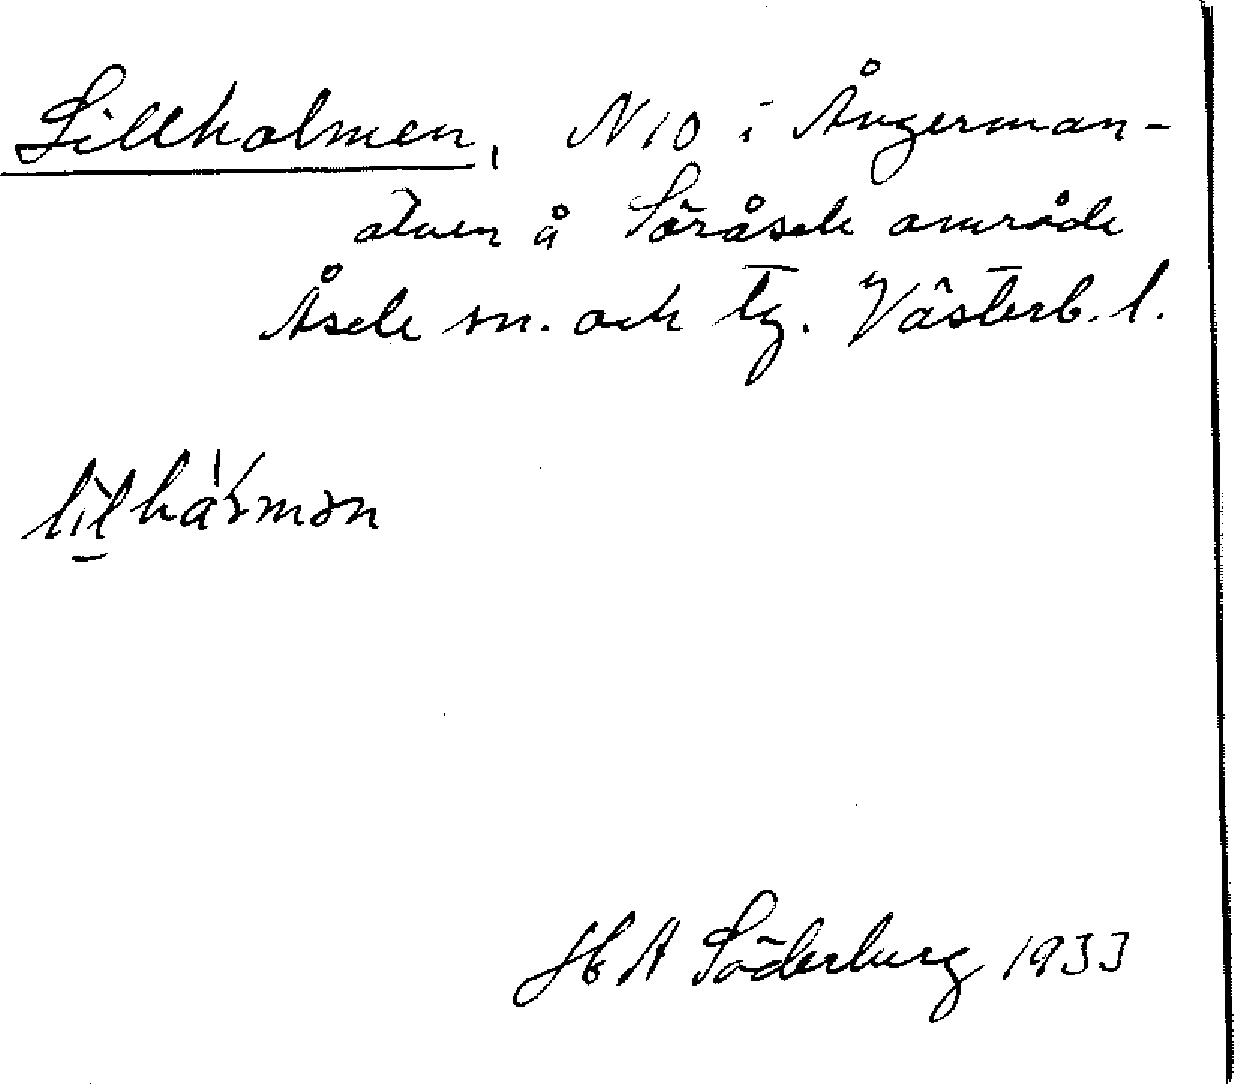 Lillholmen, N 10 i Ångerman-
älven å Söråsele område
Åsele sn. och tg. Västerb. l.
H A Söderberg 1933